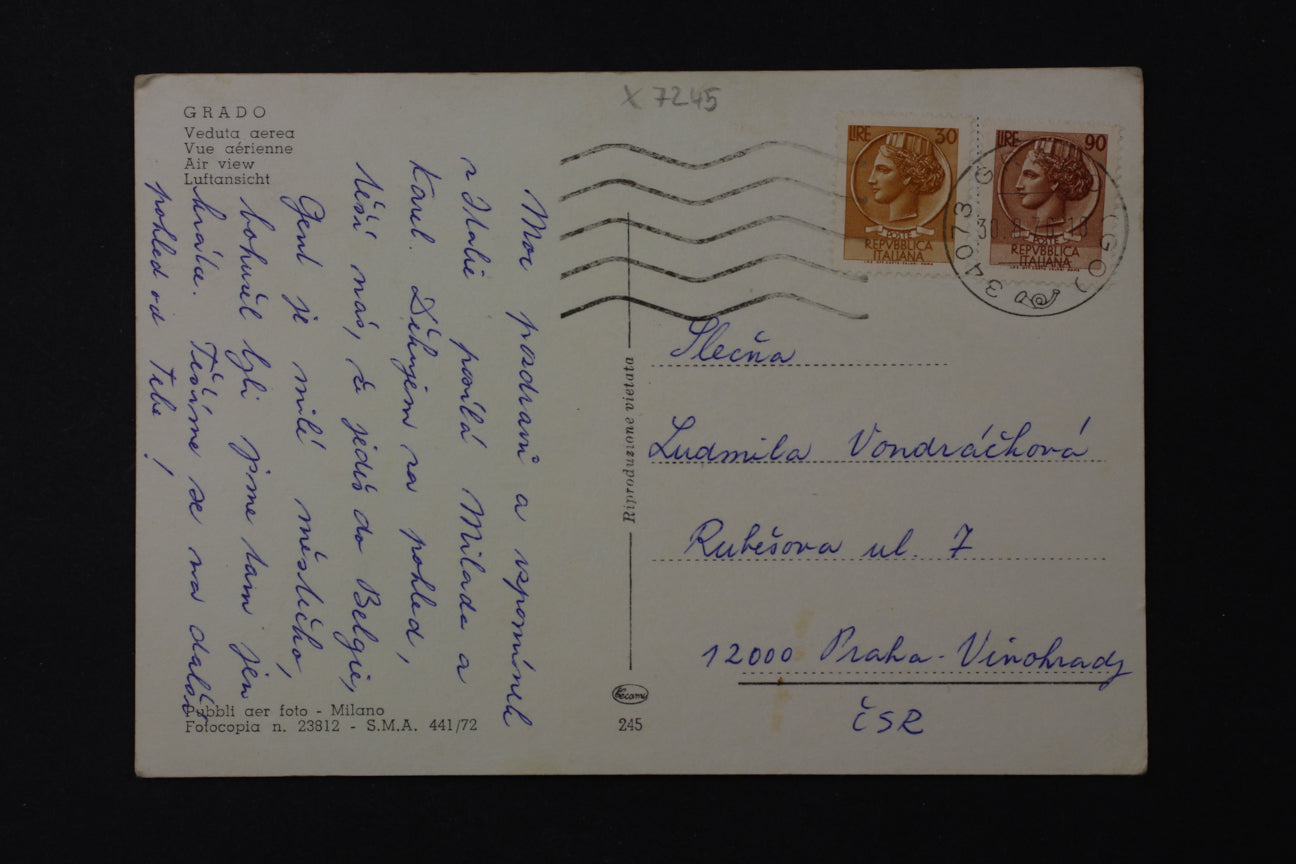 X 7245
GRADO
Veduta aerea
Vue aérienne
Air view
Luftansicht
Moc pozdravů a vzpomínek
z Italie posílá Milada a
Karel. Děkujem za pohled,
těší nás, že jedeš do Belgie,
Gent je milé městečko,
bohužel byli jsme tam jen
krátce. Těšíme se na další
pohled od Tebe!
Pubbli aer foto - Milano
Fotocopia n. 23812 - S.M.A. 441/72
Riproduzione vietata
245
LIRE 30
POSTE
REPVBBLICA
ITALIANA
LIRE 90
POSTE
REPVBBLICA
ITALIANA
34073
Slečna
Ludmila Vondráčková
Rubešova ul. 7
12000 Praha - Vinohrady
ČSR